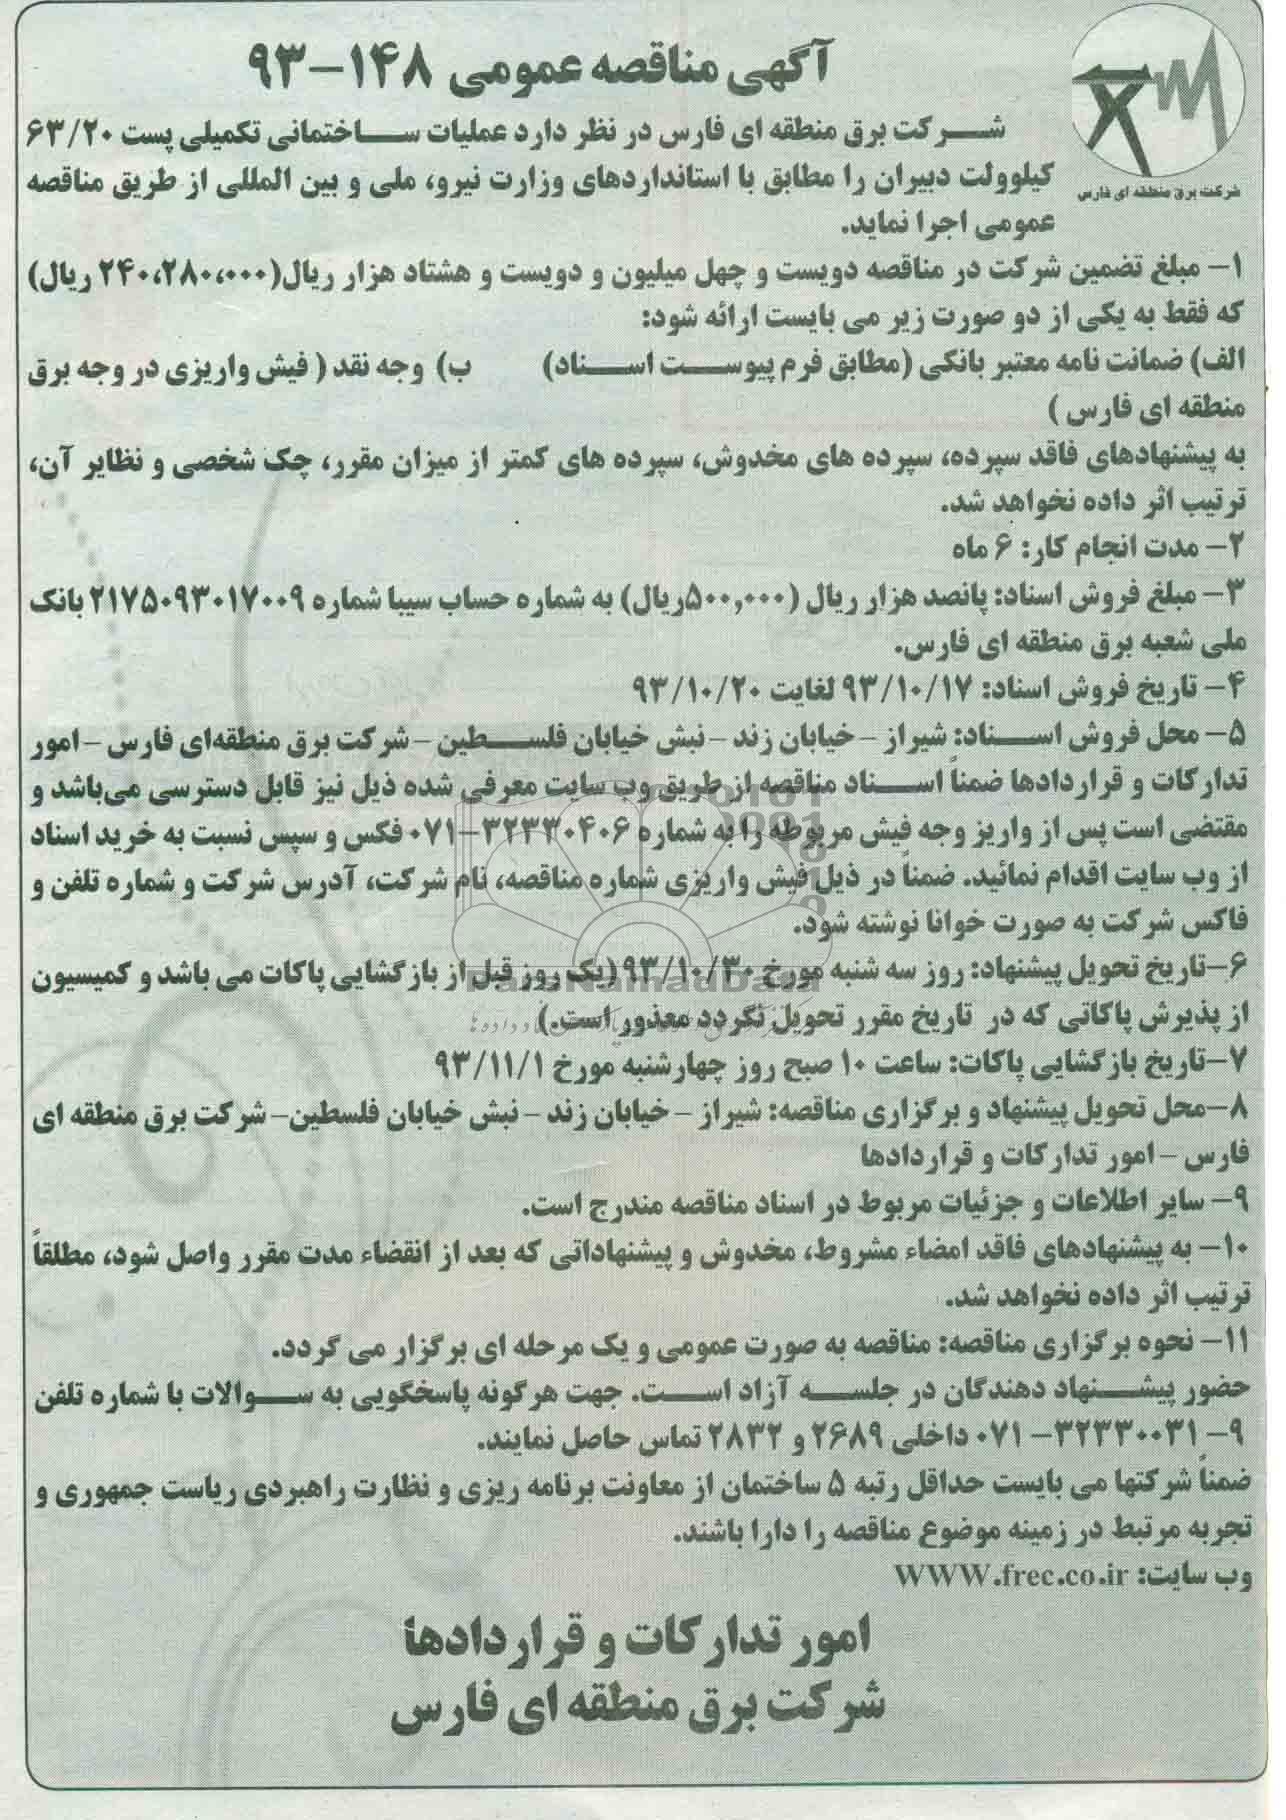 آگهی مناقصه عمومی ۱۴۸-۹۳
شرکت برق منطقه ای فارس
شرکت برق منطقه ای فارس در نظر دارد عملیات ساختمانی تکمیلی پست ۶۳/۲۰
کیلوولت دبیران را مطابق با استانداردهای وزارت نیرو، ملی و بین المللی از طریق مناقصه
عمومی اجرا نماید.
۱- مبلغ تضمین شرکت در مناقصه دویست و چهل میلیون و دویست و هشتاد هزار ریال(۲۴۰،۲۸۰،۰۰۰ ریال)
که فقط به یکی از دو صورت زیر می بایست ارائه شود:
الف) ضمانت نامه معتبر بانکی (مطابق فرم پیوست اسناد) ب) وجه نقد ( فیش واریزی در وجه برق
منطقه ای فارس )
به پیشنهادهای فاقد سپرده، سپرده های مخدوش، سپرده های کمتر از میزان مقرر، چک شخصی و نظایر آن،
ترتیب اثر داده نخواهد شد.
۲- مدت انجام کار: ۶ ماه
۳- مبلغ فروش اسناد: پانصد هزار ریال (۵۰۰,۰۰۰ریال) به شماره حساب سیبا شماره ۲۱۷۵۰۹۳۰۱۷۰۰۹ بانک
ملی شعبه برق منطقه ای فارس.
۴- تاریخ فروش اسناد: ۹۳/۱۰/۱۷ لغایت ۹۳/۱۰/۲۰
۵- محل فروش اسناد: شیراز - خیابان زند - نبش خیابان فلسطین - شرکت برق منطقه‌ای فارس - امور
تدارکات و قراردادها ضمناً اسناد مناقصه از طریق وب سایت معرفی شده ذیل نیز قابل دسترسی می‌باشد و
مقتضی است پس از واریز وجه فیش مربوطه را به شماره ۳۲۳۳۰۴۰۶-۰۷۱ فکس و سپس نسبت به خرید اسناد
از وب سایت اقدام نمائید. ضمناً در ذیل فیش واریزی شماره مناقصه، نام شرکت، آدرس شرکت و شماره تلفن و
فاکس شرکت به صورت خوانا نوشته شود.
۶-تاریخ تحویل پیشنهاد: روز سه شنبه مورخ ۹۳/۱۰/۳۰ (یک روز قبل از بازگشایی پاکات می باشد و کمیسیون
از پذیرش پاکاتی که در تاریخ مقرر تحویل نگردد معذور است.)
۷-تاریخ بازگشایی پاکات: ساعت ۱۰ صبح روز چهارشنبه مورخ ۹۳/۱۱/۱
۸-محل تحویل پیشنهاد و برگزاری مناقصه: شیراز - خیابان زند - نبش خیابان فلسطین- شرکت برق منطقه ای
فارس - امور تدارکات و قراردادها
۹- سایر اطلاعات و جزئیات مربوط در اسناد مناقصه مندرج است.
۱۰- به پیشنهادهای فاقد امضاء مشروط، مخدوش و پیشنهاداتی که بعد از انقضاء مدت مقرر واصل شود، مطلقاً
ترتیب اثر داده نخواهد شد.
۱۱- نحوه برگزاری مناقصه: مناقصه به صورت عمومی و یک مرحله ای برگزار می گردد.
حضور پیشنهاد دهندگان در جلسه آزاد است. جهت هرگونه پاسخگویی به سوالات با شماره تلفن
۹- ۳۲۳۳۰۰۳۱- ۰۷۱ داخلی ۲۶۸۹ و ۲۸۳۲ تماس حاصل نمایند.
ضمناً شرکتها می بایست حداقل رتبه ۵ ساختمان از معاونت برنامه ریزی و نظارت راهبردی ریاست جمهوری و
تجربه مرتبط در زمینه موضوع مناقصه را دارا باشند.
وب سایت: WWW.frec.co.ir
امور تدارکات و قراردادها
شرکت برق منطقه ای فارس